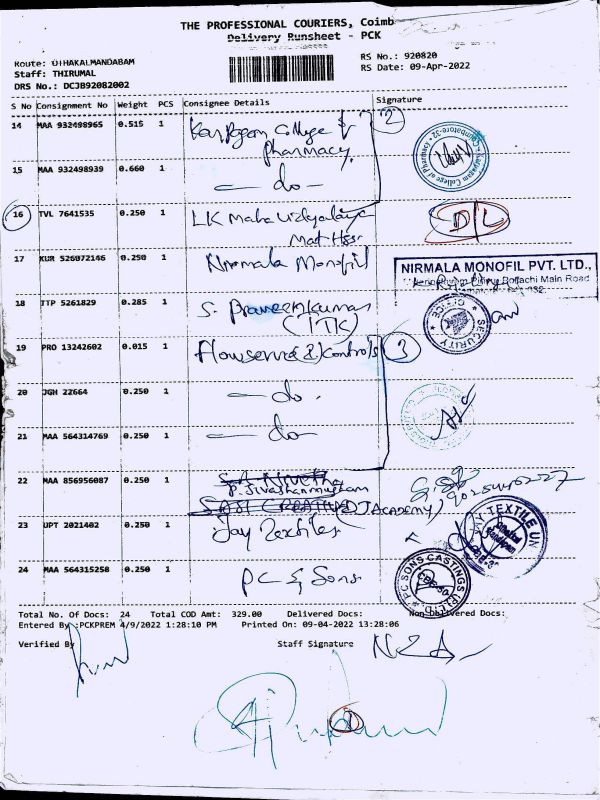 THE PROFESSIONAL COURIERS, Coimb
Delivery Runsheet - PCK
Route: OTHAKALMANDABAM
RS No.: 920820
Staff: THIRUMAL
RS Date: 09-Apr-2022
DRS No.: DCJB92082002
S No Consignment No Weight PCS Consignee Details Signature
14 MAA 932498965 0.515 1 Karpagam College of Pharmacy 2
15 MAA 932498939 0.660 1 — do —
16 TVL 7641535 0.250 1 LK Maha Vidyalaya Mat Hss D/L
17 KUR 526072146 0.250 1 Nirmala Monofil
NIRMALA MONOFIL PVT. LTD.,
Pollachi Main Road
18 TTP 5261829 0.285 1 S. Praveenkumar (ITK)
SECURITY OFFICE
19 PRO 13242602 0.015 1 Flowserve (I) Controls 3
20 JGH 22664 0.250 1 — do -
21 MAA 564314769 0.250 1 — do —
22 MAA 856956087 0.250 1
P. Sivashanmugam
(DJ Academy)
23 UPT 2021402 0.250 1 Jay Textiles
24 MAA 564315258 0.250 1 PC & Sons
PC SONS CASTINGS
Total No. Of Docs: 24 Total COD Amt: 329.00 Delivered Docs: Non Delivered Docs:
Entered By :PCKPREM 4/9/2022 1:28:10 PM Printed On: 09-04-2022 13:28:06
Verified By
Staff Signature